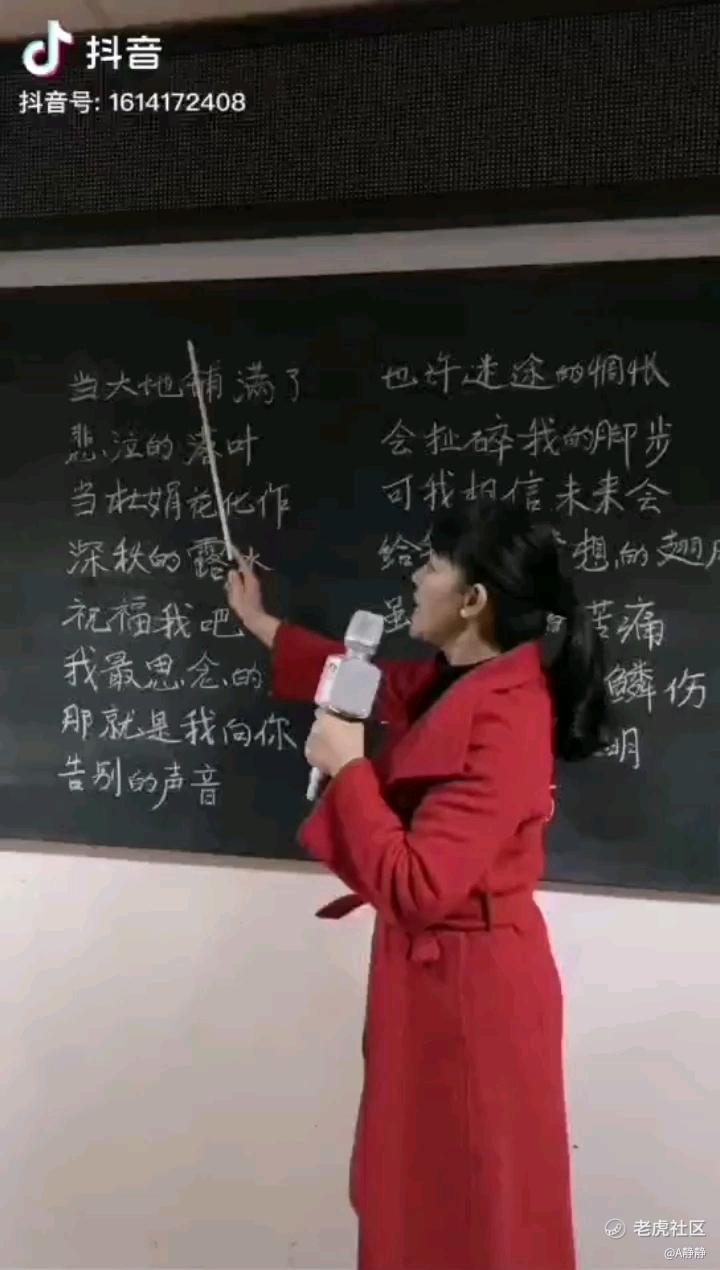 抖音
抖音号: 1614172408
当大地铺满了
悲泣的落叶
当杜娟花化作
深秋的露水
祝福我吧
我最思念的
那就是我向你
告别的声音
也许迷途的惆怅
会扯碎我的脚步
可我相信未来会
给 想的翅
虽 苦痛
鳞伤
明
老虎社区
@A静静